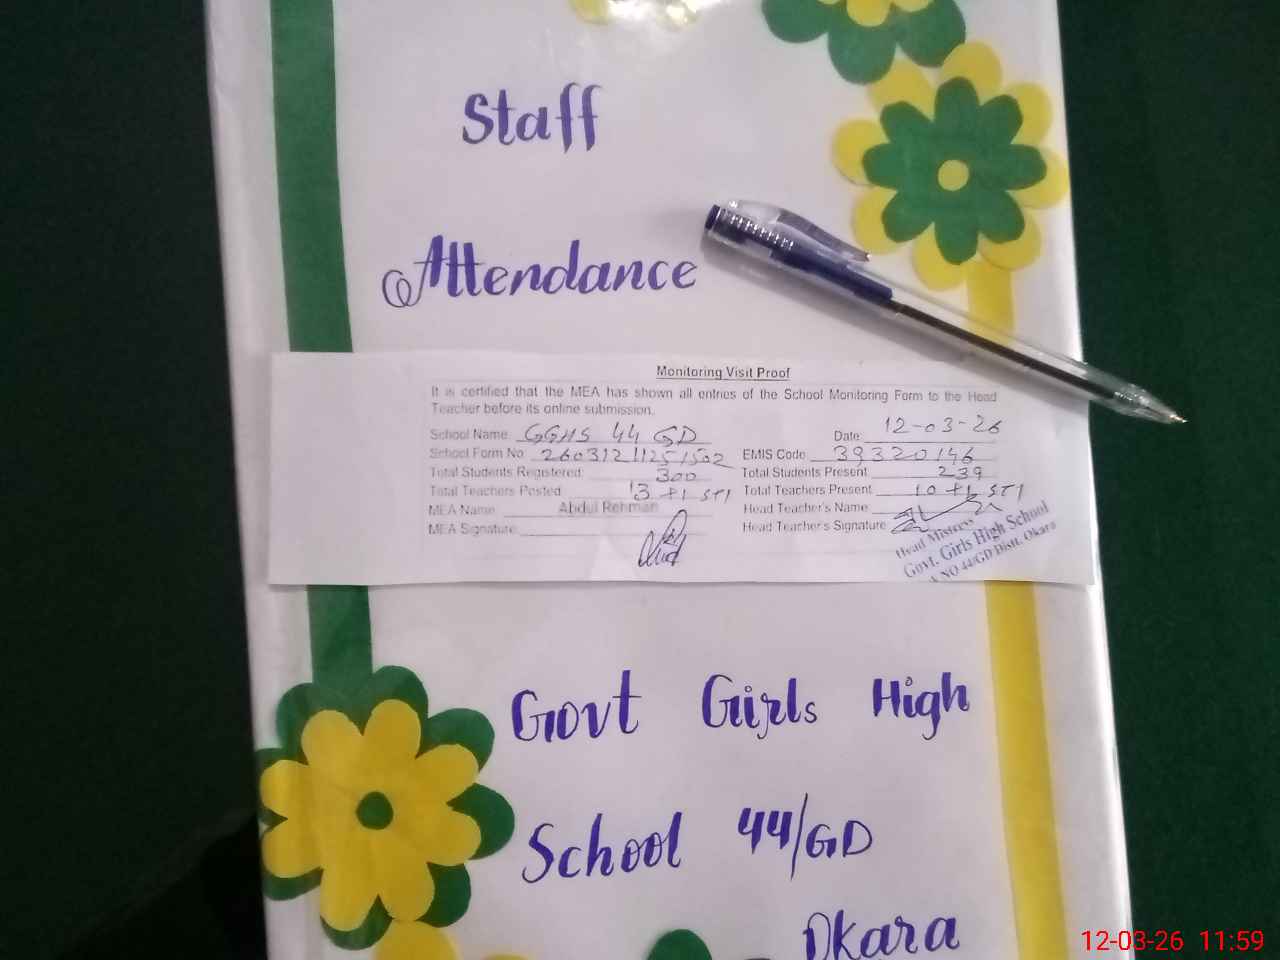 Staff
Attendance
Monitoring Visit Proof
It is certified that the MEA has shown all entries of the School Monitoring Form to the Head
Teacher before its online submission.
School Name GGHS 44 GD Date 12-03-26
School Form No. 26031211251502 EMIS Code 39320146
Total Students Registered 300 Total Students Present 239
Total Teachers Posted 13 +1 STI Total Teachers Present 10 +1 STI
MEA Name Abdul Rehman Head Teacher's Name
MEA Signature Head Teacher's Signature
Head Mistress
Govt. Girls High School
NO 44/GD Distt. Okara
Govt Girls High
School 44/GD
Okara
12-03-26 11:59